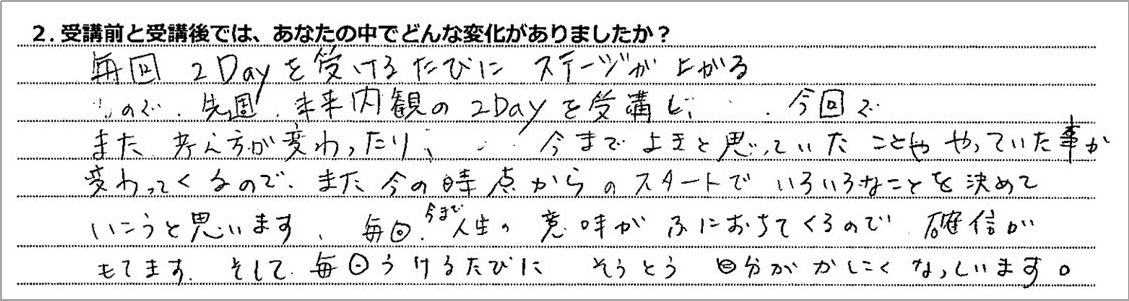 2. 受講前と受講後では、あなたの中でどんな変化がありましたか？
毎回 2Dayを受けるたびに ステージが上がる
ので、先週、未来内観の2Dayを受講し、 今回で
また 考え方が変わったり、 今まで よきと思っていた ことや やっていた事が
変わってくるので、また 今の時点からのスタートで いろいろなことを決めて
いこうと思います、毎回、今まで人生の 意味が ふにおちてくるので 確信が
もてます。そして 毎回うけるたびに そうとう 自分が なっています。